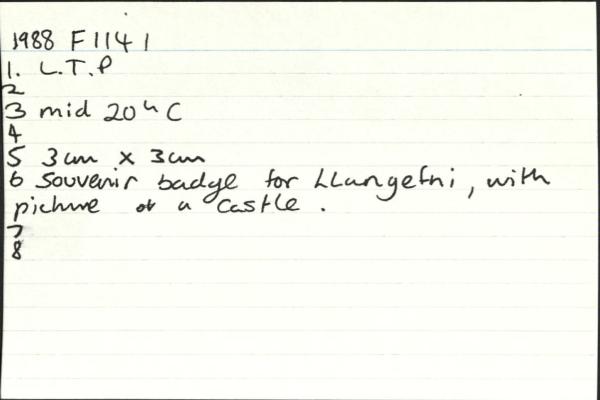 1988 F1141
1. L.T.P
2
3 mid 20th C
4
5 3cm x 3cm
6 Souvenir badge for LLangefni, with
picture of a castle.
7
8